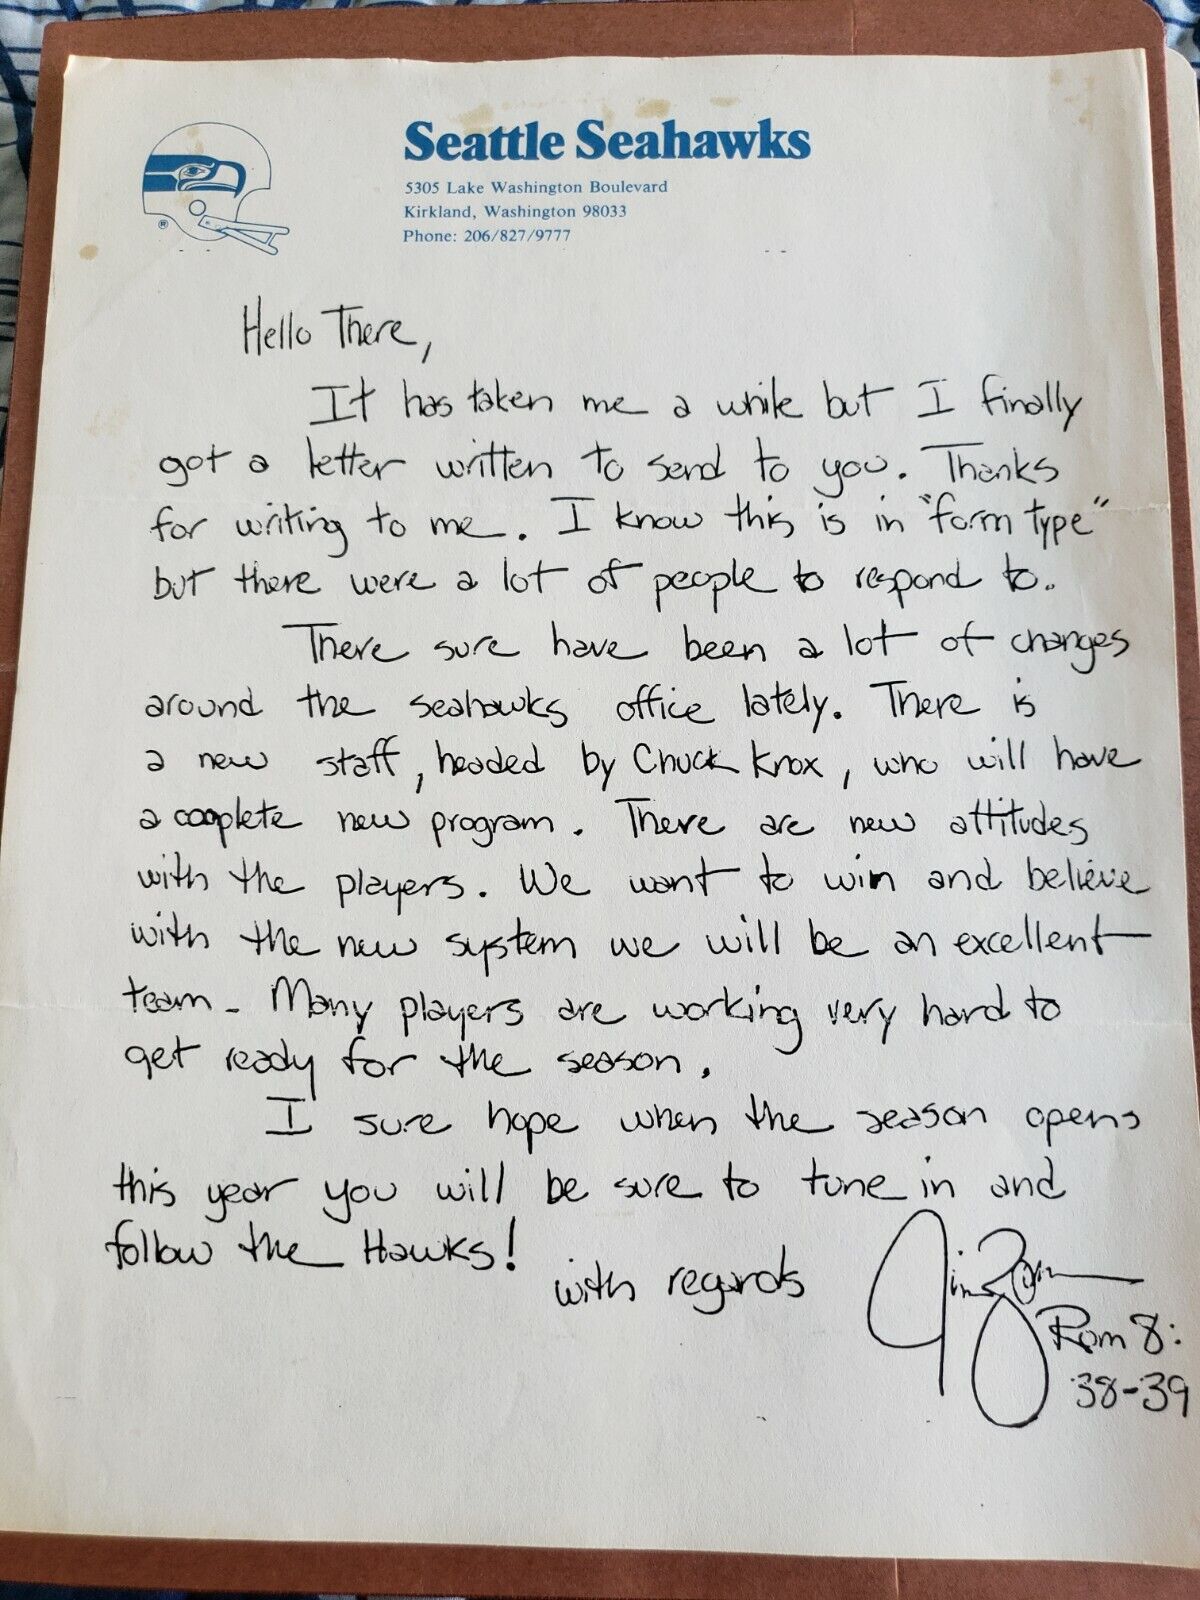 Seattle Seahawks
5305 Lake Washington Boulevard
Kirkland, Washington 98033
Phone: 206/827/9777
®
Hello There,
It has taken me a while but I finally
got a letter written to send to you. Thanks
for writing to me. I know this is in "form type"
but there were a lot of people to respond to..
There sure have been a lot of changes
around the seahawks office lately. There is
a new staff, headed by Chuck Knox, who will have
a coplete new program. There are new attitudes
with the players. We want to win and believe
with the new system we will be an excellent
team - Many players are working very hard to
get ready for the season.
I sure hope when the season opens
this year you will be sure to tune in and
follow the Hawks!
with regards
Jim Zorn
Rom 8:
38-39